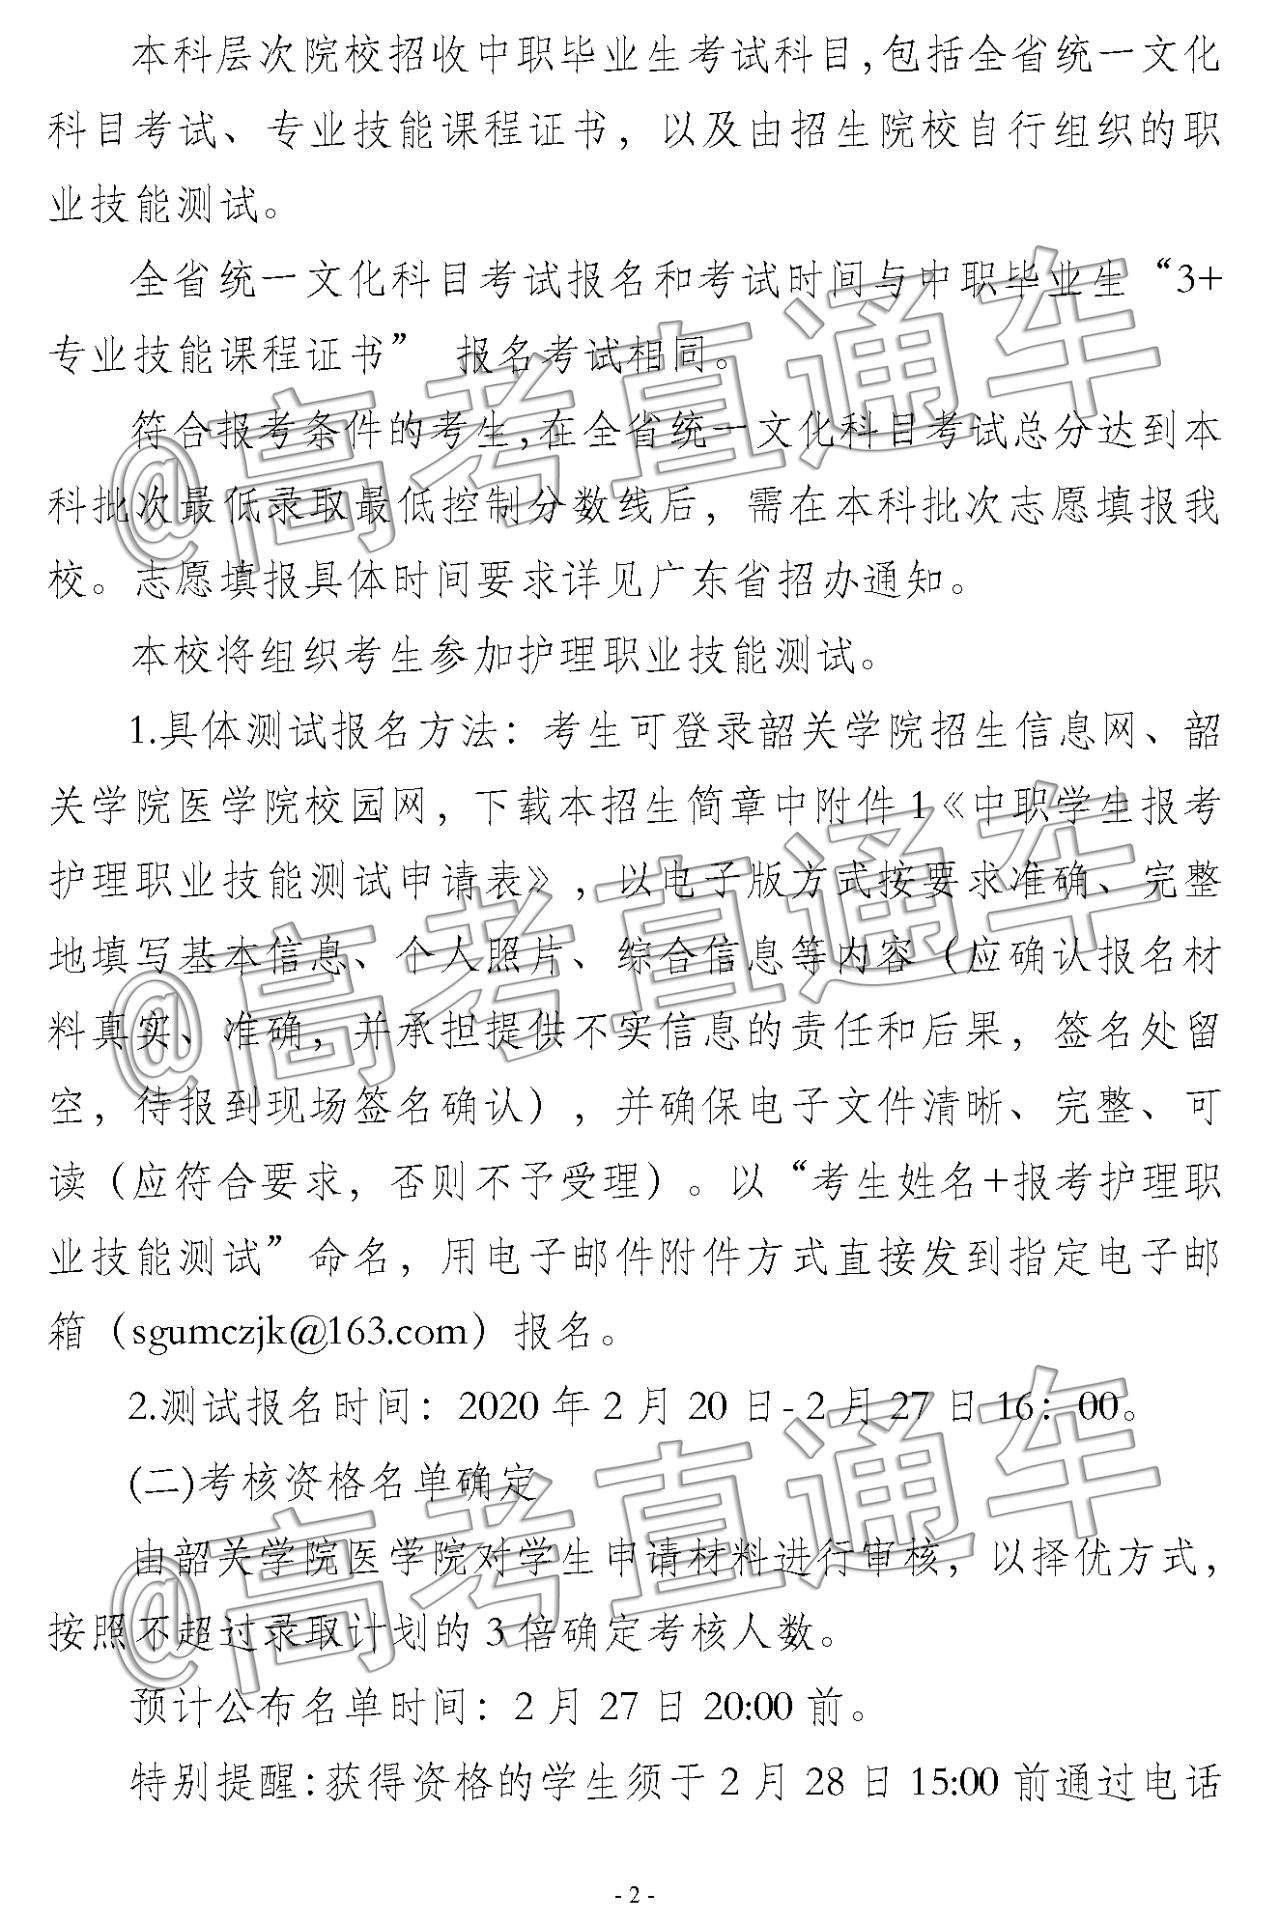 本科层次院校招收中职毕业生考试科目,包括全省统一文化
科目考试、专业技能课程证书，以及由招生院校自行组织的职
业技能测试。
全省统一文化科目考试报名和考试时间与中职毕业生“3+
专业技能课程证书” 报名考试相同。
符合报考条件的考生,在全省统一文化科目考试总分达到本
科批次最低录取最低控制分数线后，需在本科批次志愿填报我
校。志愿填报具体时间要求详见广东省招办通知。
本校将组织考生参加护理职业技能测试。
1.具体测试报名方法：考生可登录韶关学院招生信息网、韶
关学院医学院校园网，下载本招生简章中附件1《中职学生报考
护理职业技能测试申请表》，以电子版方式按要求准确、完整
地填写基本信息、个人照片、综合信息等内容（应确认报名材
料真实、准确，并承担提供不实信息的责任和后果，签名处留
空，待报到现场签名确认），并确保电子文件清晰、完整、可
读（应符合要求，否则不予受理）。以“考生姓名+报考护理职
业技能测试”命名，用电子邮件附件方式直接发到指定电子邮
箱（sgumczjk@163.com）报名。
2.测试报名时间：2020 年 2 月 20 日- 2 月 27 日 16：00。
(二)考核资格名单确定
由韶关学院医学院对学生申请材料进行审核，以择优方式，
按照不超过录取计划的 3 倍确定考核人数。
预计公布名单时间：2 月 27 日 20:00 前。
特别提醒:获得资格的学生须于 2 月 28 日 15:00 前通过电话
- 2 -
@高考直通车
@高考直通车
@高考直通车